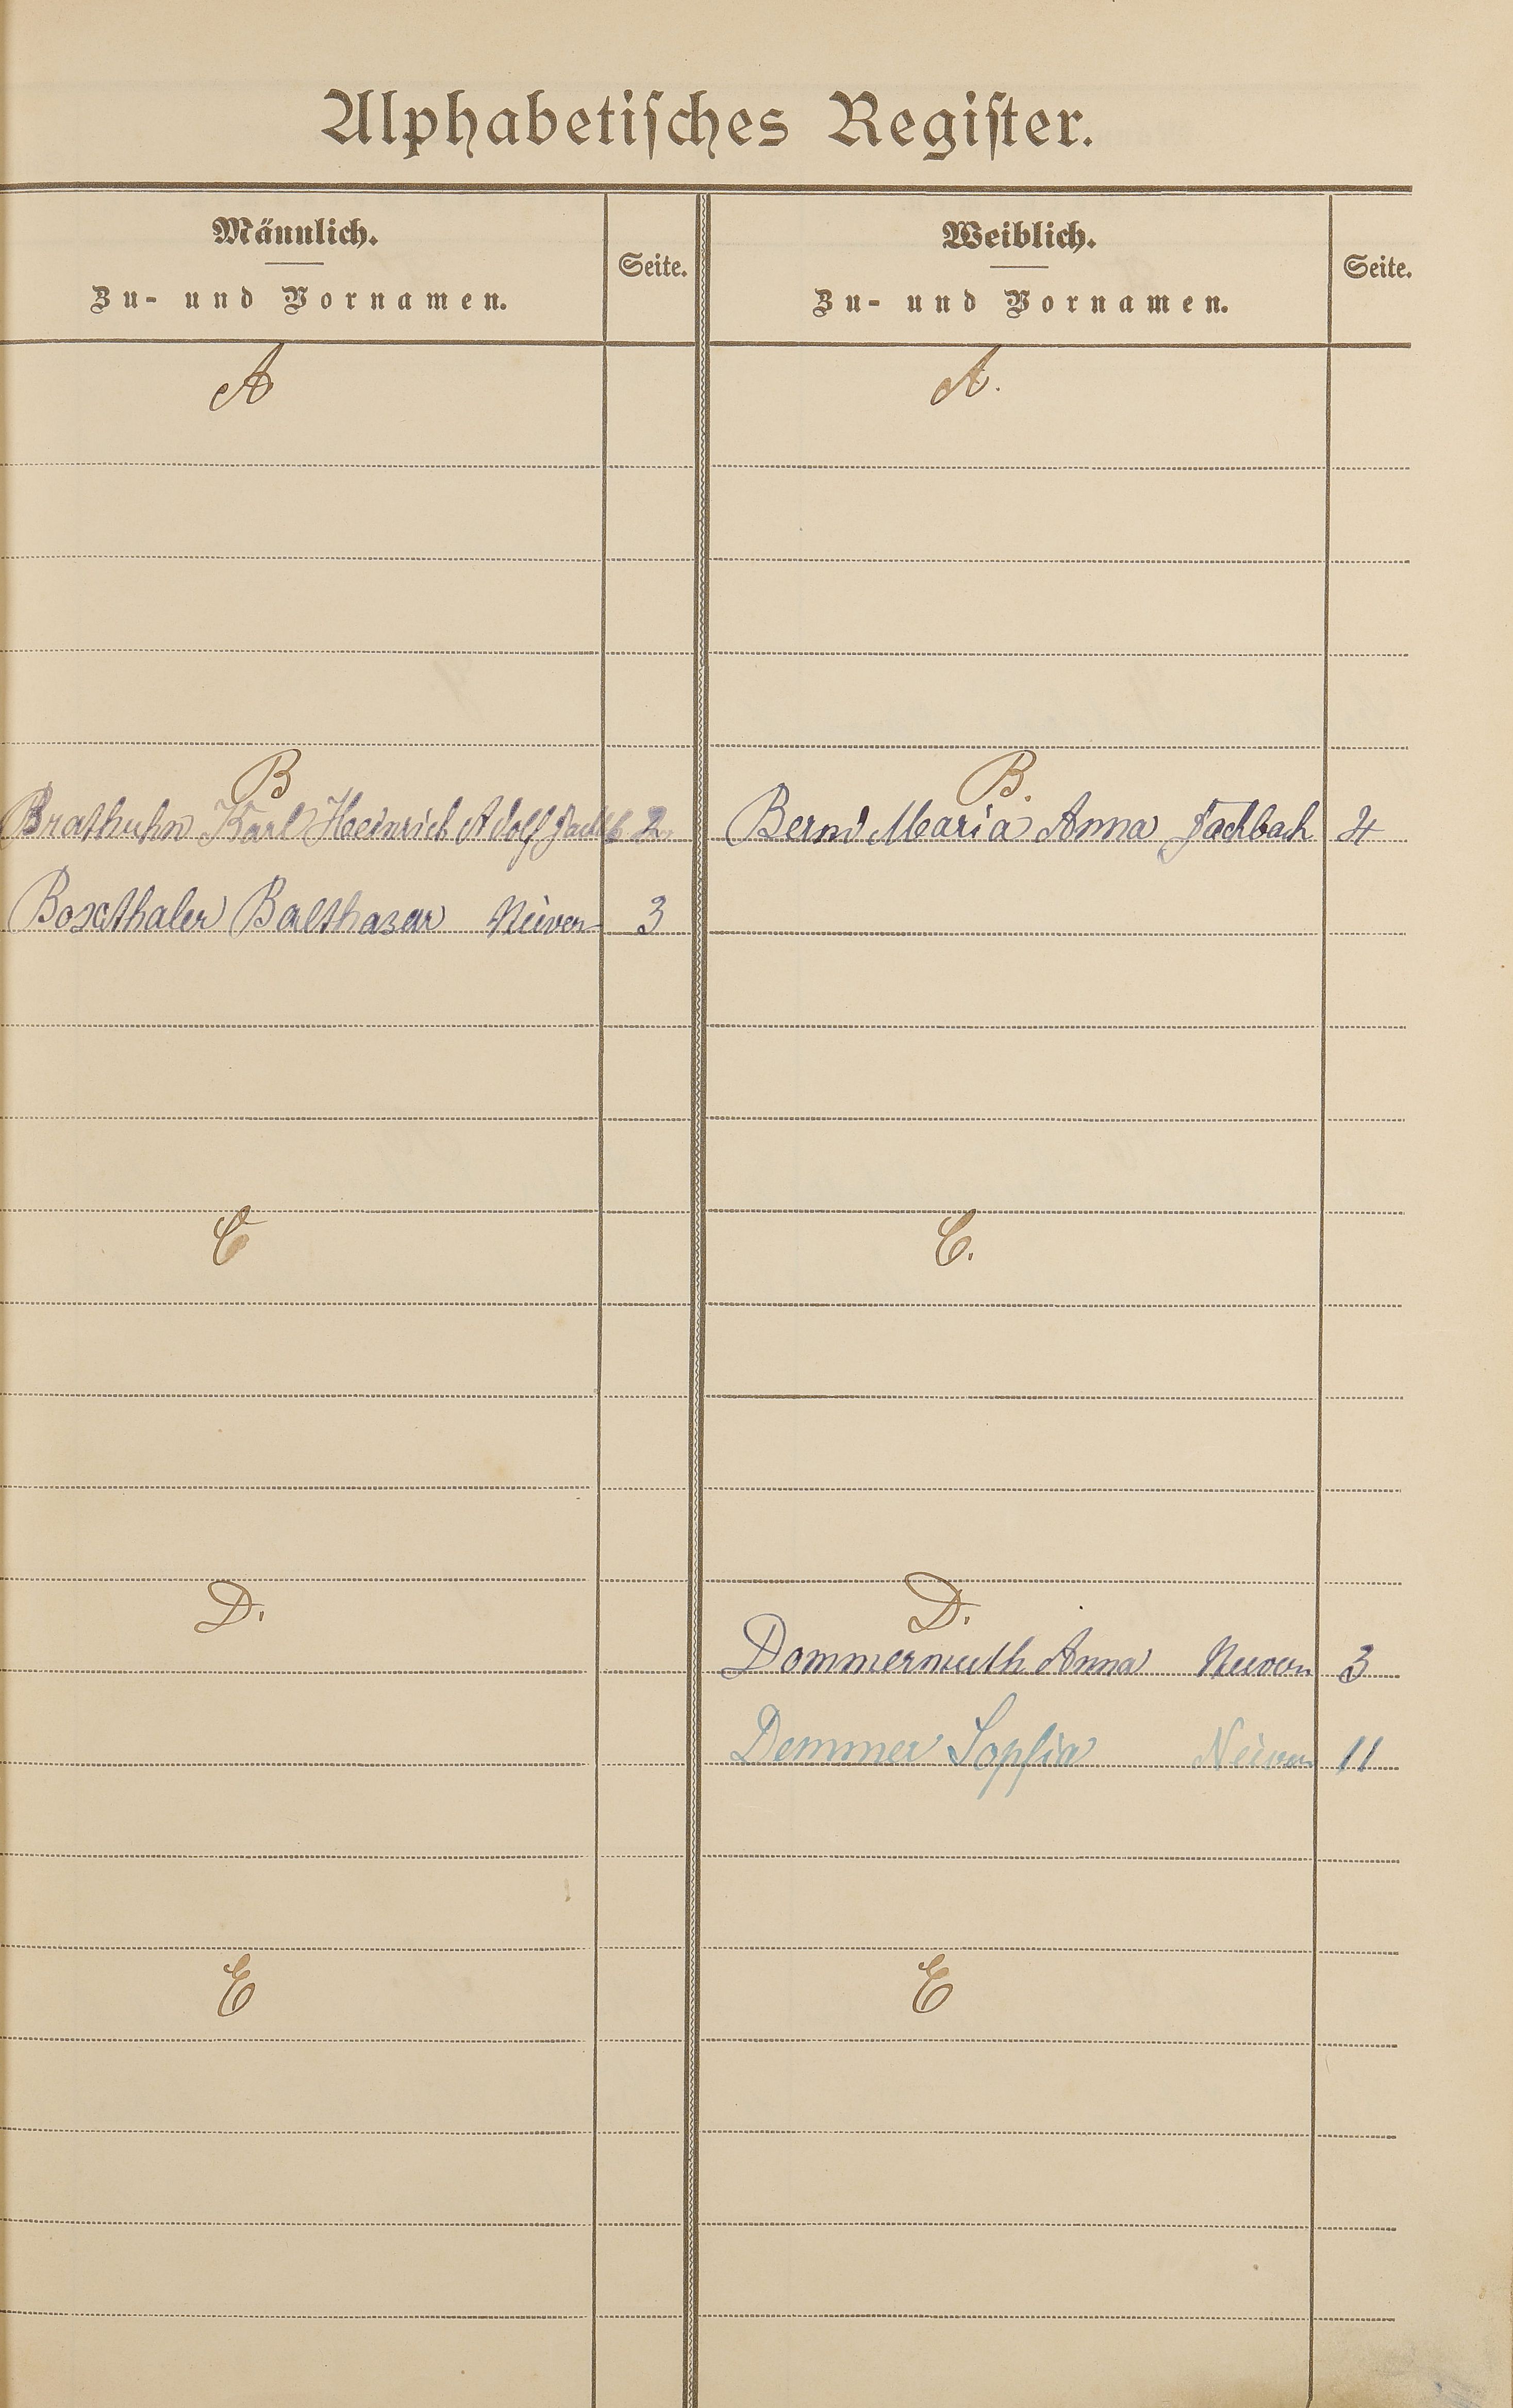 Alphabetisches Register.
Männlich.
Zu- und Vornamen.
Seite.
Weiblich.
Zu- und Vornamen.
Seite.
A
A.
B
B.
Brathuhn Karl Heinrich Adolf Fachb 2.
Bernd Maria Anna Fachbach 4
Boxthaler Balthasar Nievern 3
C
C.
D.
D.
Dommermuth Anna Nievern 3
Demmer Sophia Nievern 11
E
E